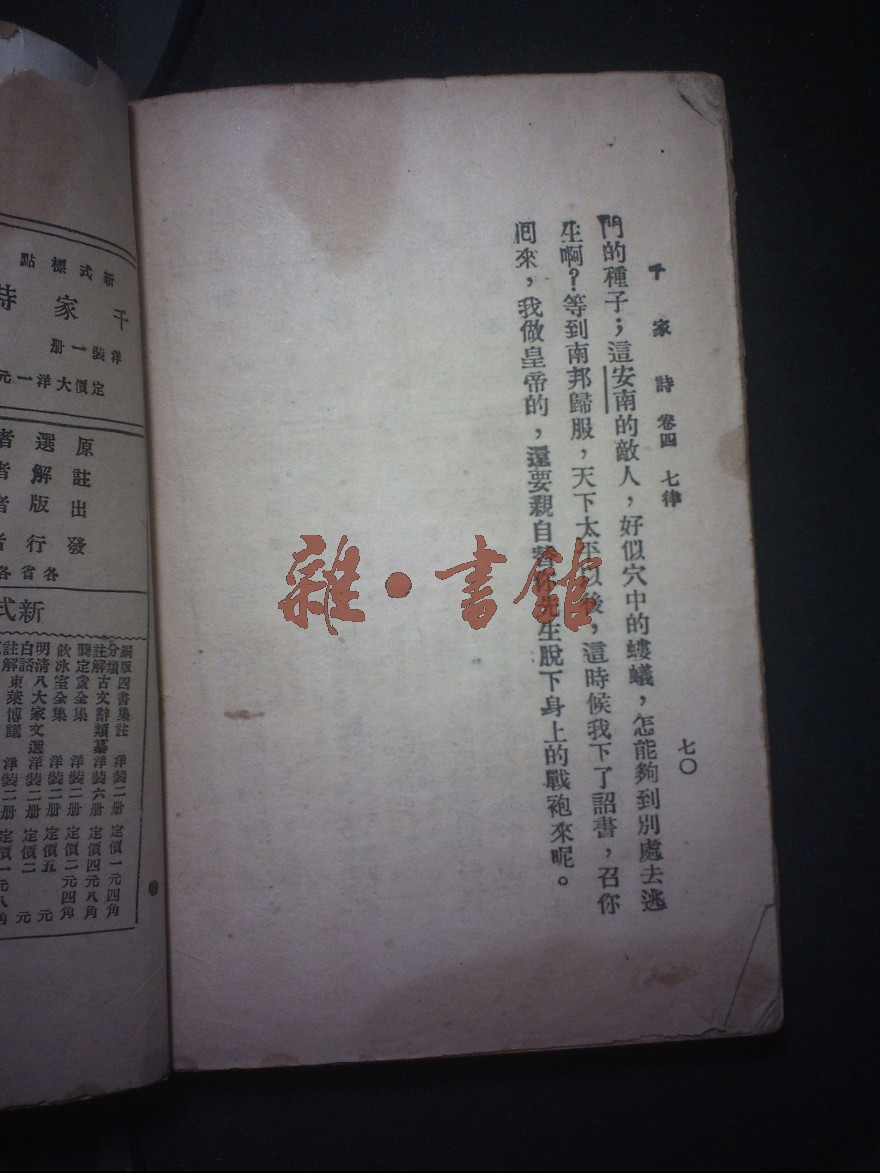 千家詩 卷四 七律 七〇
門的種子；這安南的敵人，好似穴中的螻蟻，怎能夠到別處去逃
生啊？等到南邦歸服，天下太平以後，這時候我下了詔書，召你
囘來，我做皇帝的，還要親自 先生脫下身上的戰袍來呢。
雜・書館
新式標點
千家詩
洋裝一册
定價大洋一元
原選者
註解者
出版者
發行者
各省各
新式
銅版四書集註 洋裝二册 定價一元四角
分類註解古文辭類纂 洋裝六册 定價四元八角
龔定盦全集 洋裝二册 定價二元四角
飲冰室全集 洋裝二册 定價五元
明清八大家文選 洋裝二册 定價二元
白話註解東萊博議 洋裝二册 定價一元八角